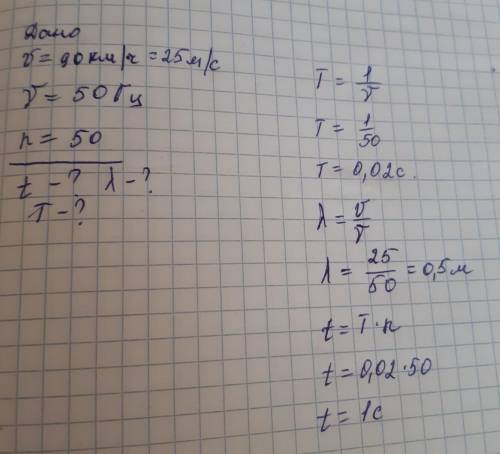 Дано
v = 90 км/ч = 25 м/с
ν = 50 Гц
n = 50
t - ? λ - ?
T - ?
T = 1/ν
T = 1/50
T = 0,02 с.
λ = v/ν
λ = 25/50 = 0,5 м
t = T · n
t = 0,02 · 50
t = 1 с